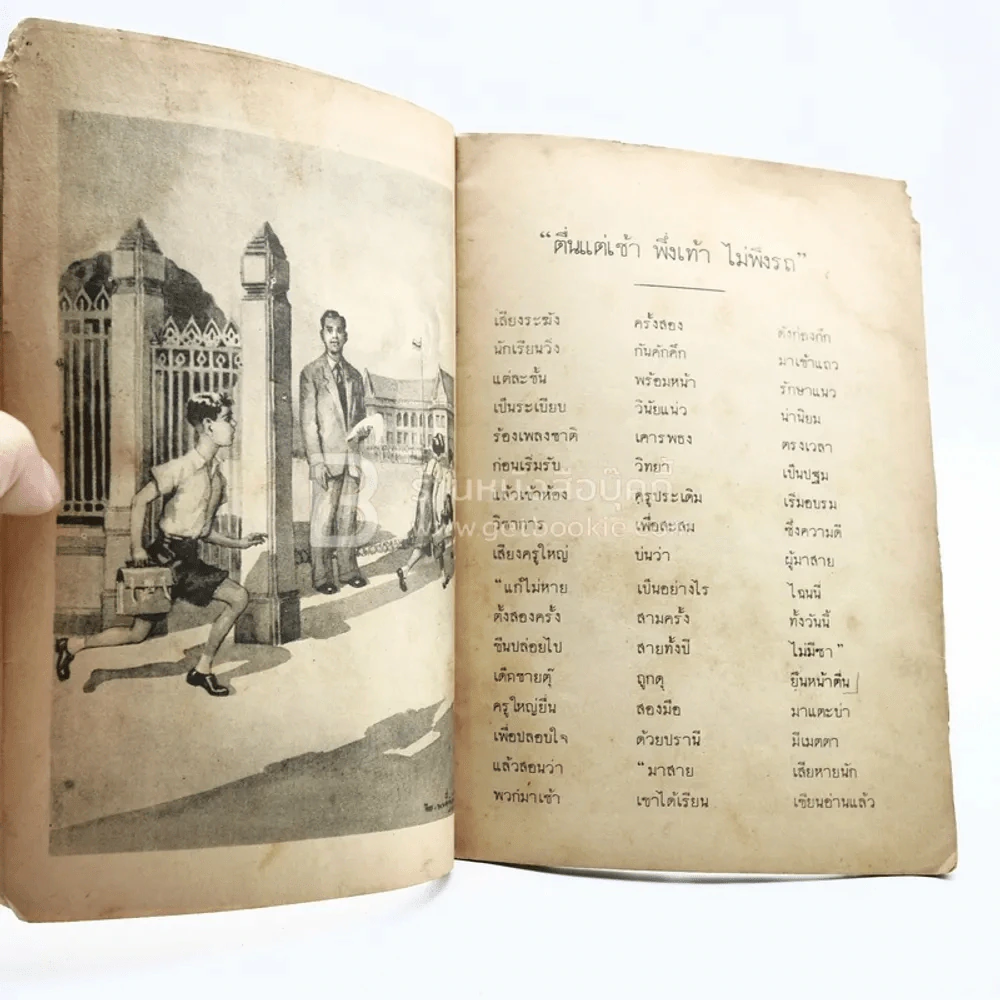 “ตื่นแต่เช้า พึ่งเท้า ไม่พึ่งรถ”
เสียงระฆัง ครั้งสอง ดังก๋องกึก
นักเรียนวิ่ง กันคักคึก มาเข้าแถว
แต่ละชั้น พร้อมหน้า รักษาแนว
เป็นระเบียบ วินัยแน่ว น่านิยม
ร้องเพลงชาติ เคารพธง ตรงเวลา
ก่อนเริ่มรับ วิทยา เป็นปฐม
แล้วเข้าห้อง ครูประเดิม เริ่มอบรม
วิชาการ เพื่อสะสม ซึ่งความดี
เสียงครูใหญ่ บ่นว่า ผู้มาสาย
“แก้ไม่หาย เป็นอย่างไร ไฉนนี่
ตั้งสองครั้ง สามครั้ง ทั้งวันนี้
ขืนปล่อยไป สายทั้งปี ไม่มีซา”
เด็กชายตุ๊ ถูกดุ ยืนหน้าตื่น
ครูใหญ่ยื่น สองมือ มาแตะบ่า
เพื่อปลอบใจ ด้วยปรานี มีเมตตา
แล้วสอนว่า “มาสาย เสียหายนัก
พวกมาเช้า เขาได้เรียน เขียนอ่านแล้ว
ร้านหนังสือบุ๊คกี้
www.getbookie.com